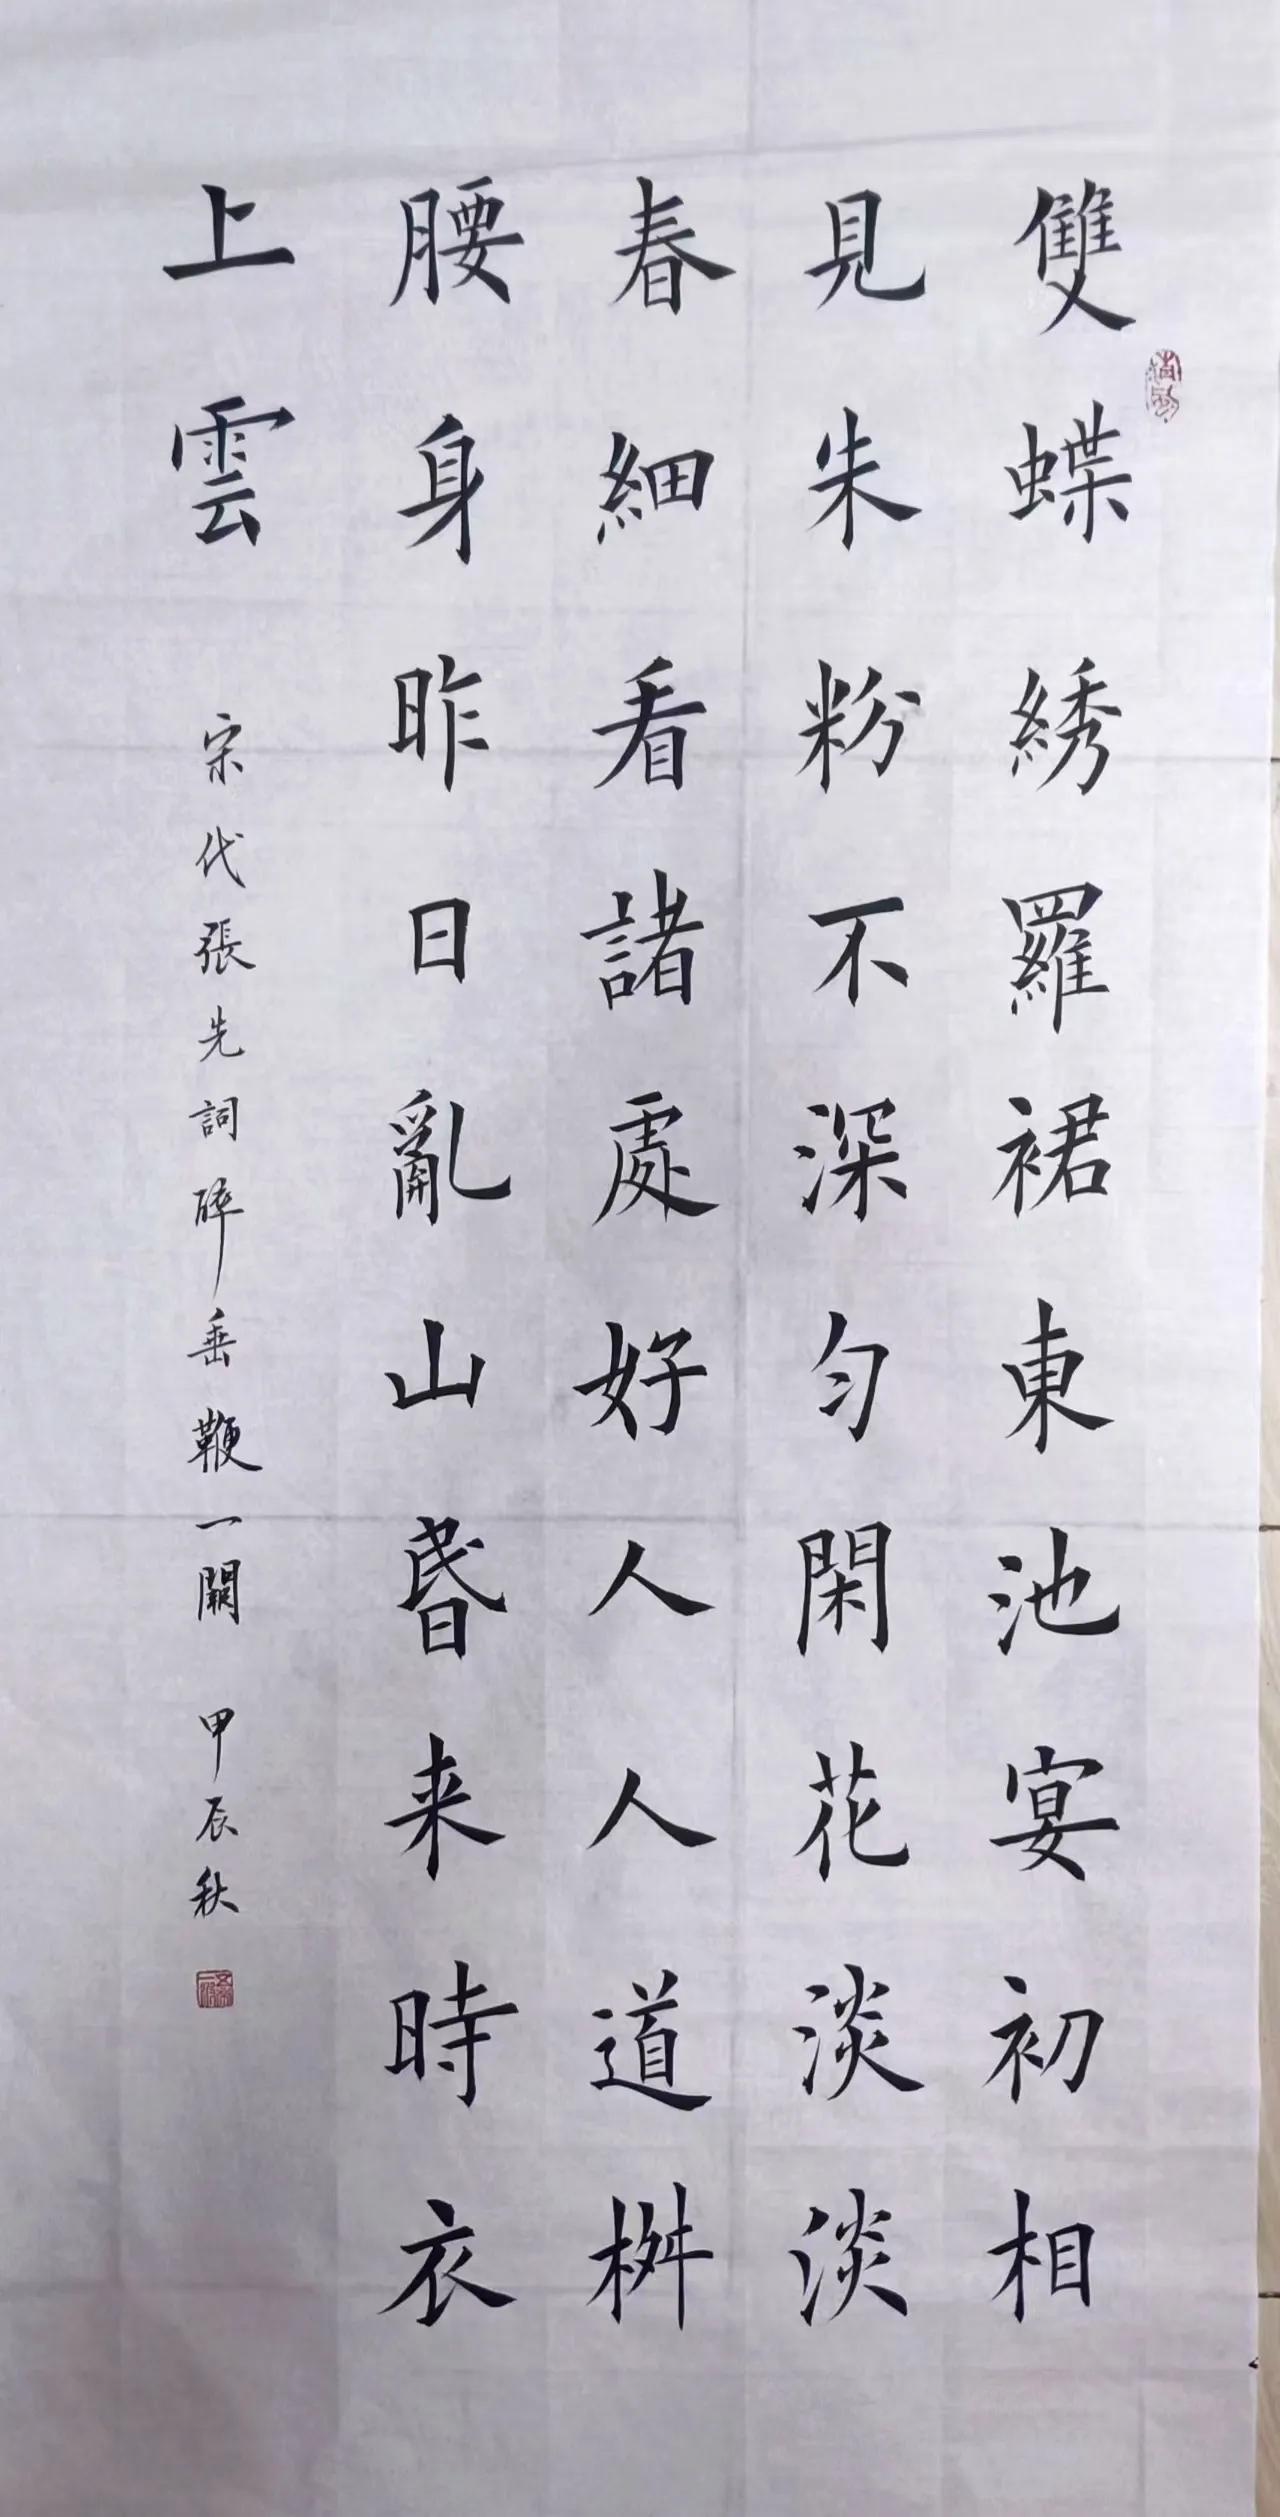 雙蝶綉羅裙東池宴初相
見朱粉不深匀閑花淡淡
春細看諸處好人人道桝
腰身昨日亂山昏来時衣
上雲
宋代張先詞醉垂鞭一闋 甲辰秋